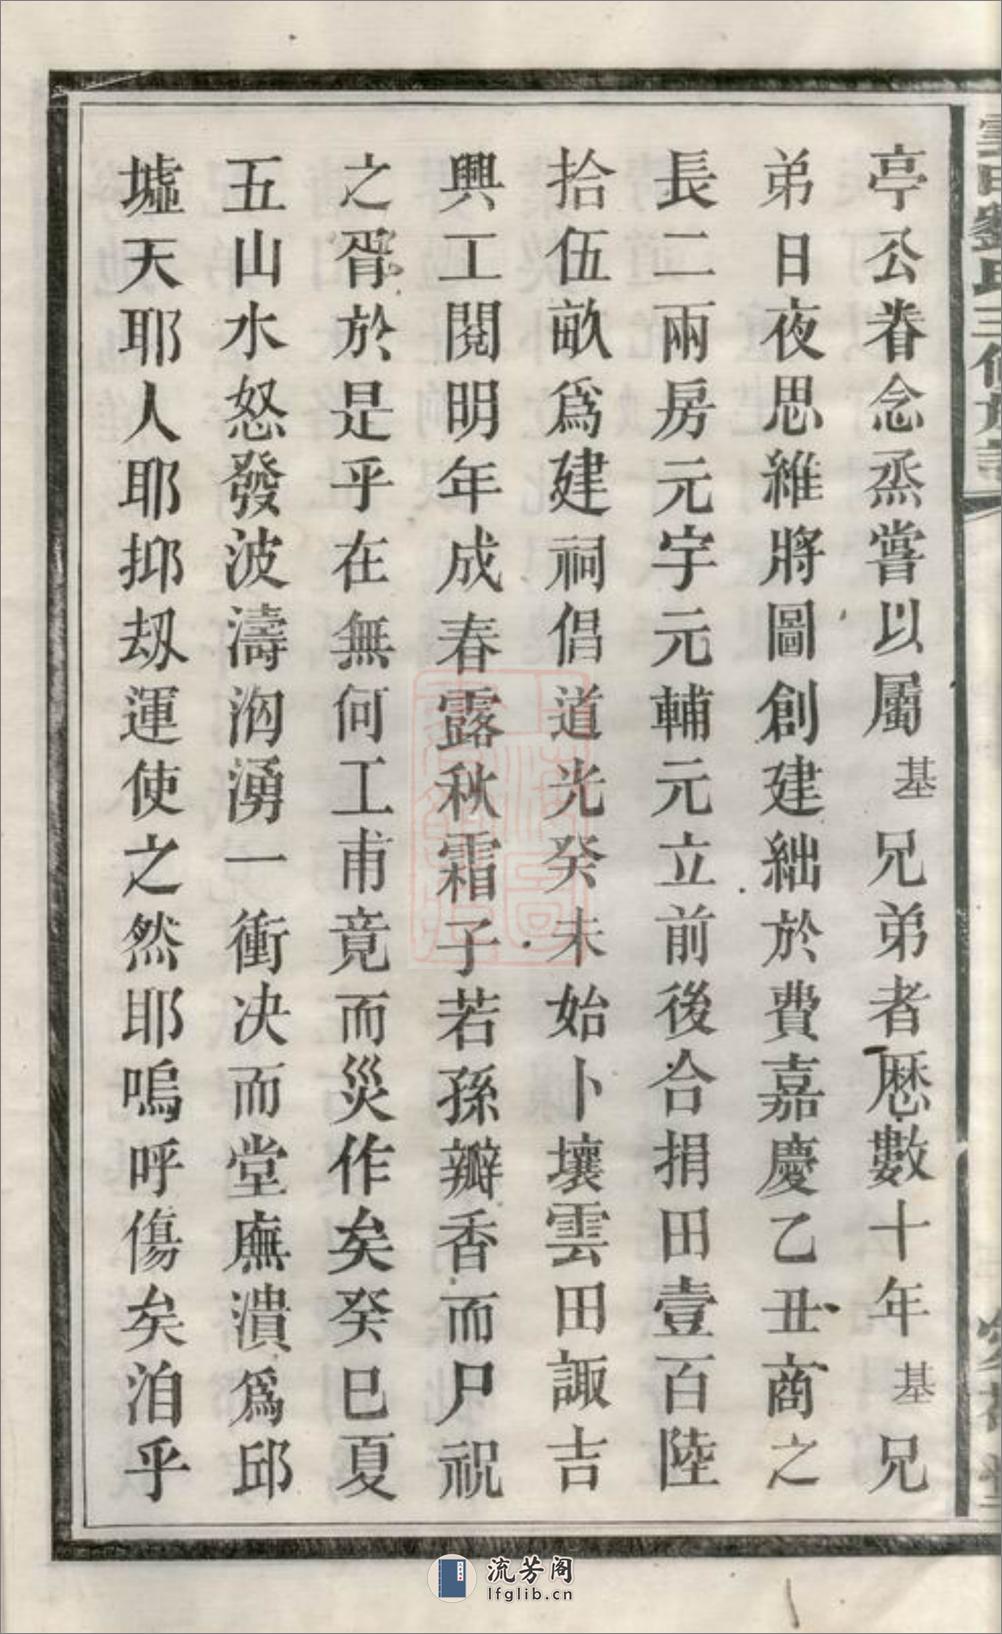 亭公眷念烝嘗以屬基兄弟者厯數十年基兄
弟日夜思維將圖創建絀於費嘉慶乙丑商之
長二兩房元宇元輔元立前後合捐田壹百陸
拾伍畝爲建祠倡道光癸未始卜壤雲田諏吉
興工閱明年成春露秋霜子若孫瓣香而尸祝
之胥於是乎在無何工甫竟而災作矣癸巳夏
五山水怒發波濤洶湧一衝决而堂廡潰爲邱
墟天耶人耶抑刼運使之然耶嗚呼傷矣洎乎
流芳阁
lfglib.cn